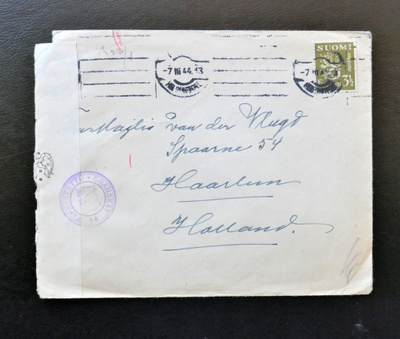 SUOMI
3½
-7 III 44.-13
-7 III 44.
van der Vlugt
Spaarne 54
Haarlem
Holland.